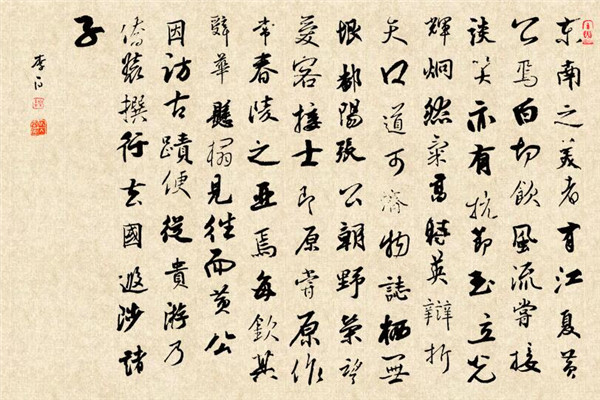 東南之美者有江夏黃
公焉白切飲風流嘗接
談笑亦有抗節玉立光
輝炯然氣高時英辯折
天口道可濟物誌栖無
垠鄱陽張公朝野榮望
愛客接士即原嘗原作
常春陵之亞焉每欽其
辟華懸榻見往而黃公
因訪古蹟便從貴游乃
僑裝撰行去國遐涉諸
子
李白